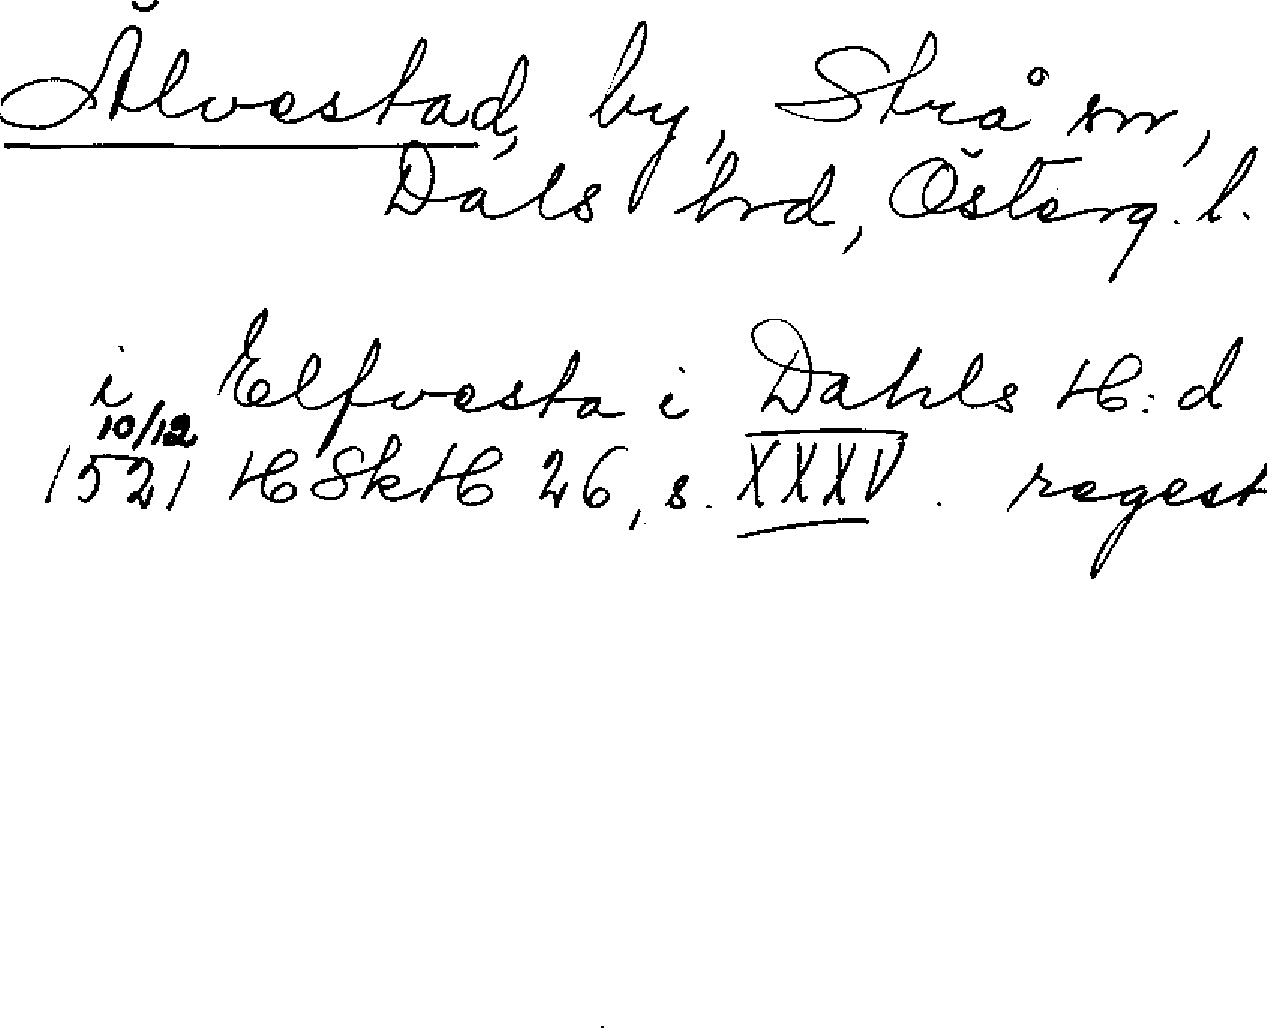 Älvestad, by, Strå sn,
Dals hrd, Österg. l.
i Elfvesta i Dahls H:d
10/12
1521 HSkH 26, s. XXXV. regest